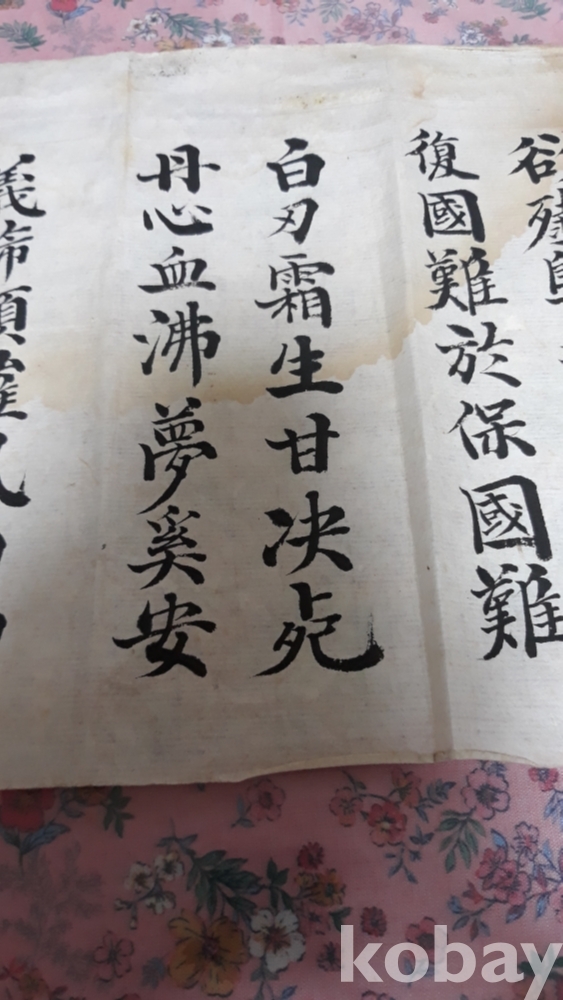 欲殲
復國難於保國難
白刃霜生甘决死
丹心血沸夢奚安
義帝項羽
kobay